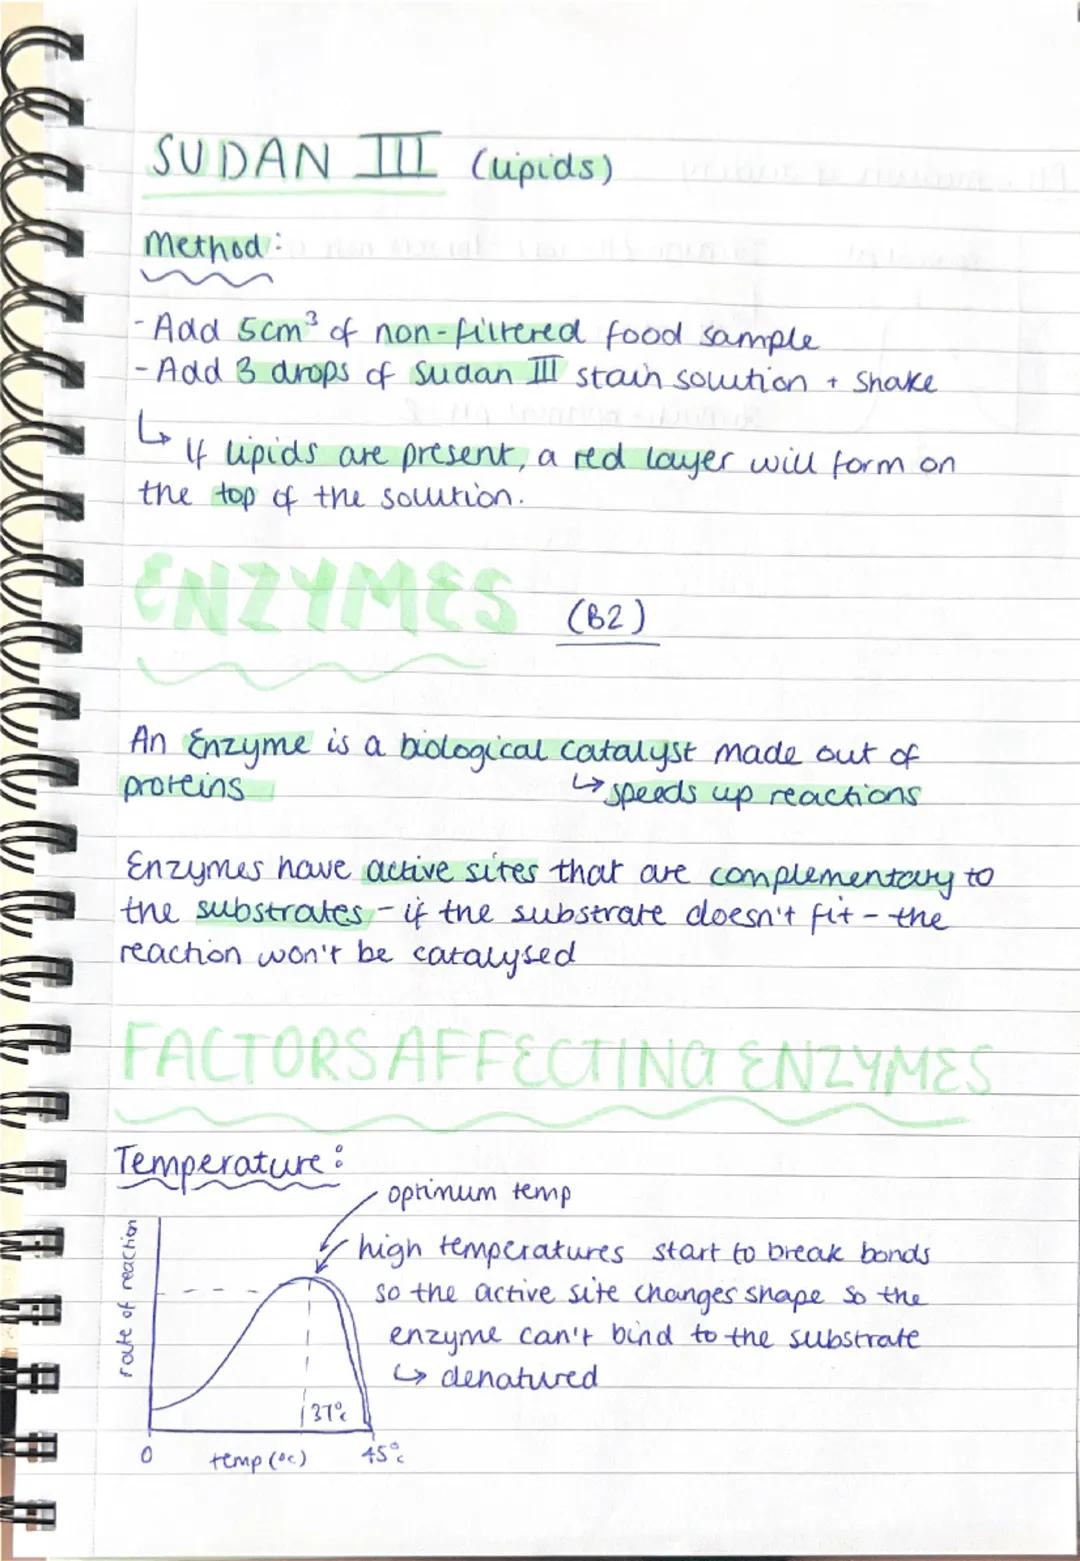 SUDAN III (lipids)
Method:
- Add 5cm³ of non-filtered food sample
- Add 3 drops of Sudan III stain solution + shake
↳ If lipids are present, a red layer will form on
the top of the solution.
ENZYMES (B2)
An Enzyme is a biological catalyst made out of
proteins ↳ speeds up reactions
Enzymes have active sites that are complementary to
the substrates - if the substrate doesn't fit - the
reaction won't be catalysed
FACTORS AFFECTING ENZYMES
Temperature:
optimum temp
high temperatures start to break bonds
so the active site changes shape so the
enzyme can't bind to the substrate
↳ denatured
rate of reaction
37°c
0 temp (°c) 45°c